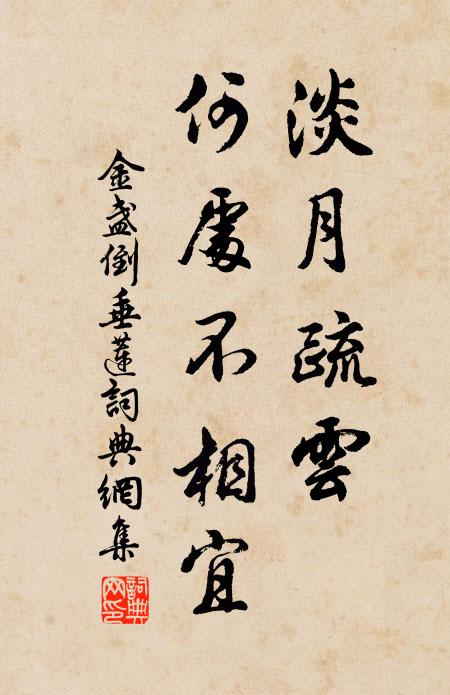 淡月疏雲
何處不相宜
金盞倒垂蓮詞典網集
詞典網印